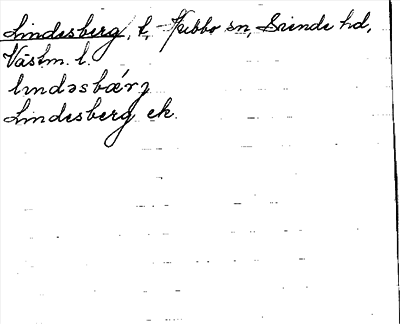 Lindesberg, t, Kubbo sn, Snende hd,
Västm. l.
lındəsbǽrj
Lindesberg ek.